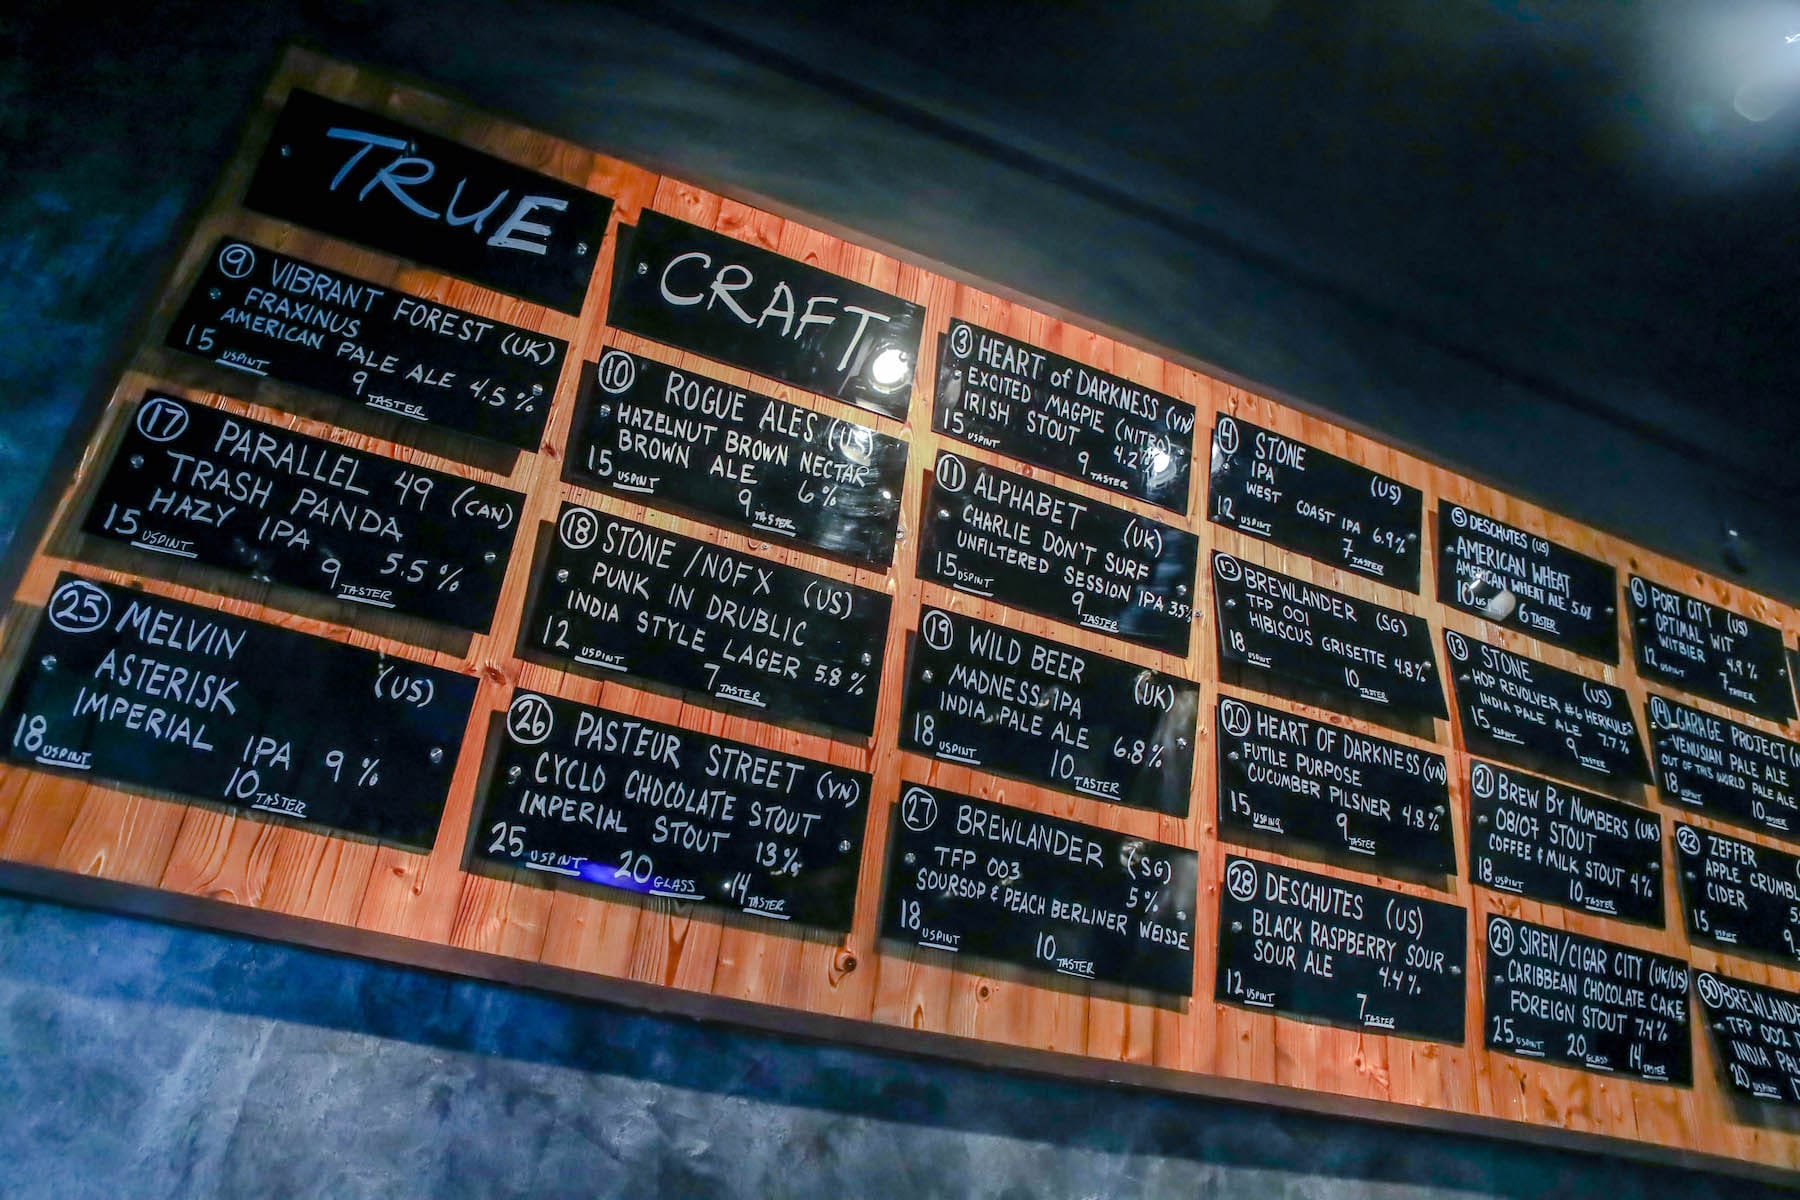 TRUE
CRAFT
9 VIBRANT FOREST (UK)
FRAXINUS
AMERICAN PALE ALE 4.5%
15 USPINT 9 TASTER
10 ROGUE ALES (US)
HAZELNUT BROWN NECTAR
BROWN ALE 6%
15 USPINT 9 TASTER
3 HEART of DARKNESS (VN)
EXCITED MAGPIE (NITRO)
IRISH STOUT 4.2%
15 USPINT 9 TASTER
4 STONE (US)
IPA
WEST COAST IPA 6.9%
12 USPINT 7 TASTER
5 DESCHUTES (US)
AMERICAN WHEAT
AMERICAN WHEAT ALE 5.0%
10 6 TASTER
6 PORT CITY (US)
OPTIMAL WIT
WITBIER 4.9%
12 USPINT 7 TASTER
17 PARALLEL 49 (CAN)
TRASH PANDA
HAZY IPA 5.5%
15 USPINT 9 TASTER
18 STONE/NOFX (US)
PUNK IN DRUBLIC
INDIA STYLE LAGER 5.8%
12 USPINT 7 TASTER
11 ALPHABET (UK)
CHARLIE DON'T SURF
UNFILTERED SESSION IPA 3.5%
15 USPINT 9 TASTER
12 BREWLANDER (SG)
TFP 001
HIBISCUS GRISETTE 4.8%
18 USPINT 10 TASTER
13 STONE (US)
HOP REVOLVER #6 HERKULES
INDIA PALE ALE 7.7%
15 USPINT 9 TASTER
14 GARAGE PROJECT
VENUSIAN PALE ALE
OUT OF THIS WORLD PALE ALE
18 USPINT 10 TASTER
25 MELVIN (US)
ASTERISK
IMPERIAL IPA 9%
18 USPINT 10 TASTER
26 PASTEUR STREET (VN)
CYCLO CHOCOLATE STOUT
IMPERIAL STOUT 13%
25 USPINT 20 GLASS 14 TASTER
19 WILD BEER (UK)
MADNESS IPA
INDIA PALE ALE 6.8%
18 USPINT 10 TASTER
20 HEART OF DARKNESS (VN)
FUTILE PURPOSE
CUCUMBER PILSNER 4.8%
15 USPINT 9 TASTER
21 BREW BY NUMBERS (UK)
08/07 STOUT
COFFEE & MILK STOUT 4%
18 USPINT 10 TASTER
22 ZEFFER
APPLE CRUMBL
CIDER
15 USPINT 9
27 BREWLANDER (SG)
TFP 003 5%
SOURSOP & PEACH BERLINER WEISSE
18 USPINT 10 TASTER
28 DESCHUTES (US)
BLACK RASPBERRY SOUR
SOUR ALE 4.4%
12 USPINT 7 TASTER
29 SIREN/CIGAR CITY (UK/US)
CARIBBEAN CHOCOLATE CAKE
FOREIGN STOUT 7.4%
25 USPINT 20 GLASS 14 TASTER
30 BREWLANDE
TFP 002
INDIA PAL
20 USPINT